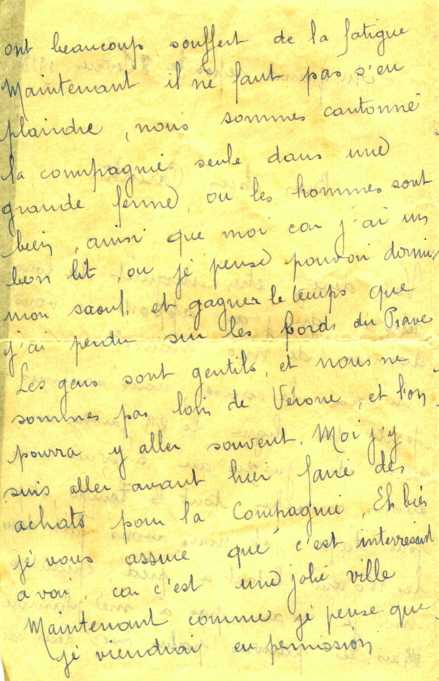 ont beaucoup souffert de la fatigue
Maintenant il ne faut pas s'en
plaindre, nous sommes cantonné
la compagnie seule dans une
grande ferme, ou les hommes sont
bien, ainsi que moi car j'ai un
bon lit, ou je pense pouvoir dormir
mon saoul, et gagner le temps que
j'ai perdu sur les bords du Piave
Les gens sont gentils, et nous ne
sommes pas loin de Vérone, et l'on
pourra y aller souvent. Moi j'y
suis aller avant hier faire des
achats pour la Compagnie. Eh bien
je vous assure que c'est interressant
a voir, car c'est une jolie ville
Maintenant comme je pense que
je viendrai en permission